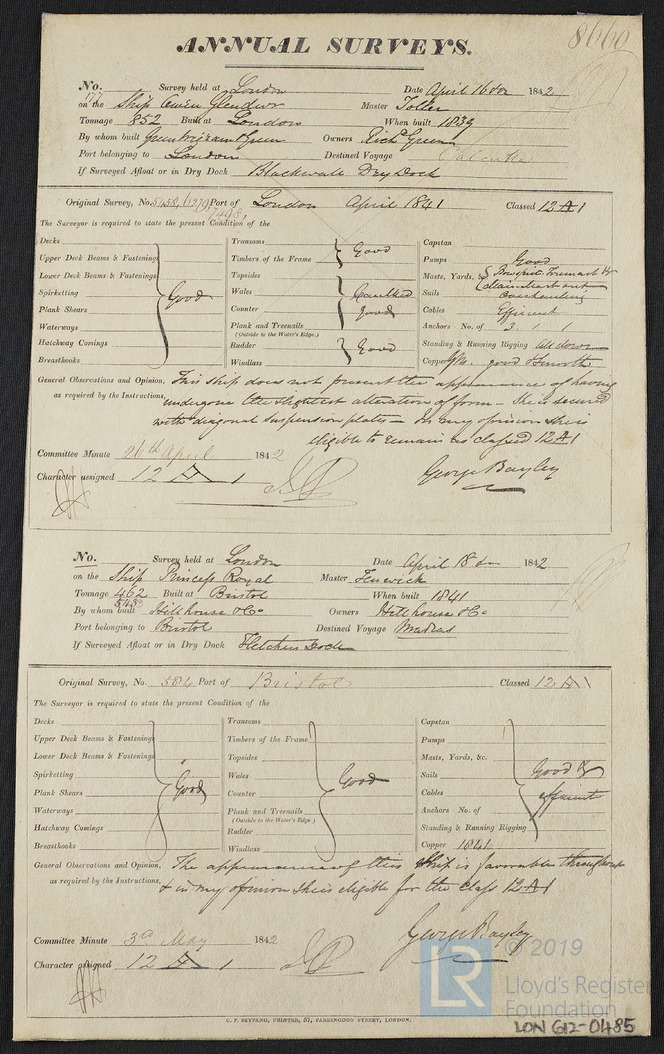 8660
ANNUAL SURVEYS.
No. 177 Survey held at London Date April 16th 1842
on the Ship Owen Glendwr Master Toller
Tonnage 852 Built at London When built 1839
By whom built Green Wigram & Green Owners Richd Green
Port belonging to London Destined Voyage Calcutta
If Surveyed Afloat or in Dry Dock Blackwall Dry Dock
Original Survey, No. 5458, Port of London April 1841 Classed 12 A 1
7498
The Surveyor is required to state the present Condition of the
Decks
Upper Deck Beams & Fastenings
Lower Deck Beams & Fastenings
Spirketting
Plank Shears
Waterways
Hatchway Comings
Breasthooks
Good
Transoms
Timbers of the Frame
Good
Topsides
Wales
Counter
Plank and Treenails
(Outside to the Water's Edge.)
Caulked
good
Rudder
Windlass
Good
Capstan
Pumps Good
Masts, Yards, & Bowsprit Foremast &
Sails Main Mast out
overhauling
Cables Efficient
Anchors No. of 3 1 1
Standing & Running Rigging all down
Copper good & smooth
General Observations and Opinion, This ship does not present the appearance of having
as required by the Instructions, undergone the slightest alteration of form - She is secured
with diagonal suspension plates - In my opinion she is
eligible to remain as classed 12 A 1
Committee Minute 26th April 1842
Character assigned 12 A 1
George Bayley
No. Survey held at London Date April 18th 1842
on the Ship Princess Royal Master Fenwick
Tonnage 462 Built at Bristol When built 1841
543
By whom built Hillhouse & Co Owners Hillhouse & Co
Port belonging to Bristol Destined Voyage Madras
If Surveyed Afloat or in Dry Dock Fletchers Dock
Original Survey, No. 584 Port of Bristol Classed 12 A 1
The Surveyor is required to state the present Condition of the
Decks
Upper Deck Beams & Fastenings
Lower Deck Beams & Fastenings
Spirketting
Plank Shears
Waterways
Hatchway Comings
Breasthooks
Good
Transoms
Timbers of the Frame
Topsides
Wales
Counter
Plank and Treenails
(Outside to the Water's Edge.)
Rudder
Windlass
Good
Capstan
Pumps
Masts, Yards, &c.
Sails
Cables
Anchors No. of
Standing & Running Rigging
Good &
efficient
Copper 1841
General Observations and Opinion, The appearance of this Ship is favorable throughout
as required by the Instructions, & in my opinion she is eligible for the Class 12 A 1
Committee Minute 3d May 1842
Character assigned 12 A 1
George Bayley
C. F. SEYFANG, PRINTED, 57, FARRINGDON STREET, LONDON.
LR
© 2019
Lloyd's Register
Foundation
LON 612-0485